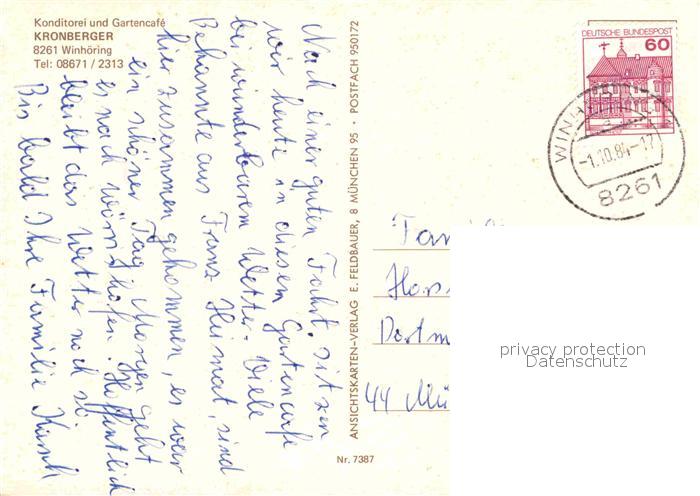 Konditorei und Gartencafé
KRONBERGER
8261 Winhöring
Tel: 08671 / 2313
Nach einer guten Fahrt sitzen
wir heute in diesem Gartencafe
bei wunderbarem Wetter. Viele
Bekannte aus Franz Heimat, sind
hier zusammen gekommen, es war
ein schöner Tag. Morgen geht
es nach Wörishofen. Hoffentlich
bleibt das Wetter noch so.
Bis bald Ihre Familie
ANSICHTSKARTEN-VERLAG E. FELDBAUER, 8 MÜNCHEN 95 · POSTFACH 950172
Nr. 7387
DEUTSCHE BUNDESPOST
60
-1.10.84-17
8261
Dortm
44 Mü
privacy protection
Datenschutz